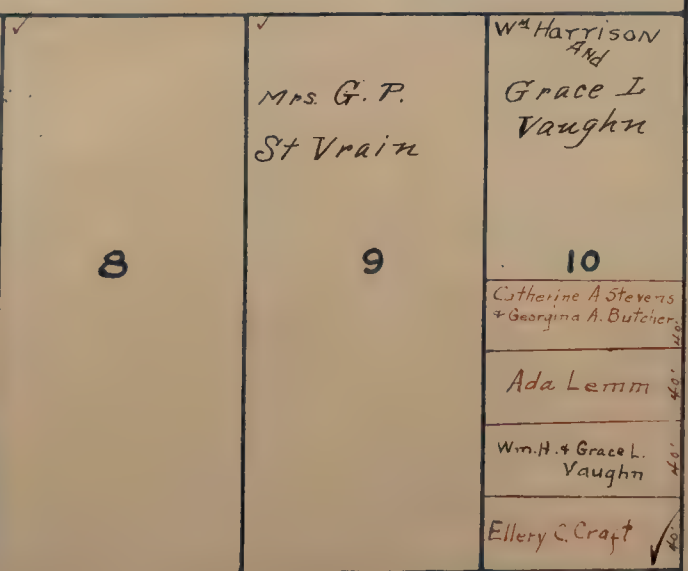 8
Mrs. G. P.
St Vrain
9
Wm Harrison
And
Grace L
Vaughn
10
Catherine A Stevens
+ Georgina A. Butcher
40'
Ada Lemm 40'
Wm. H. + Grace L.
Vaughn
40'
Ellery C. Craft 40'